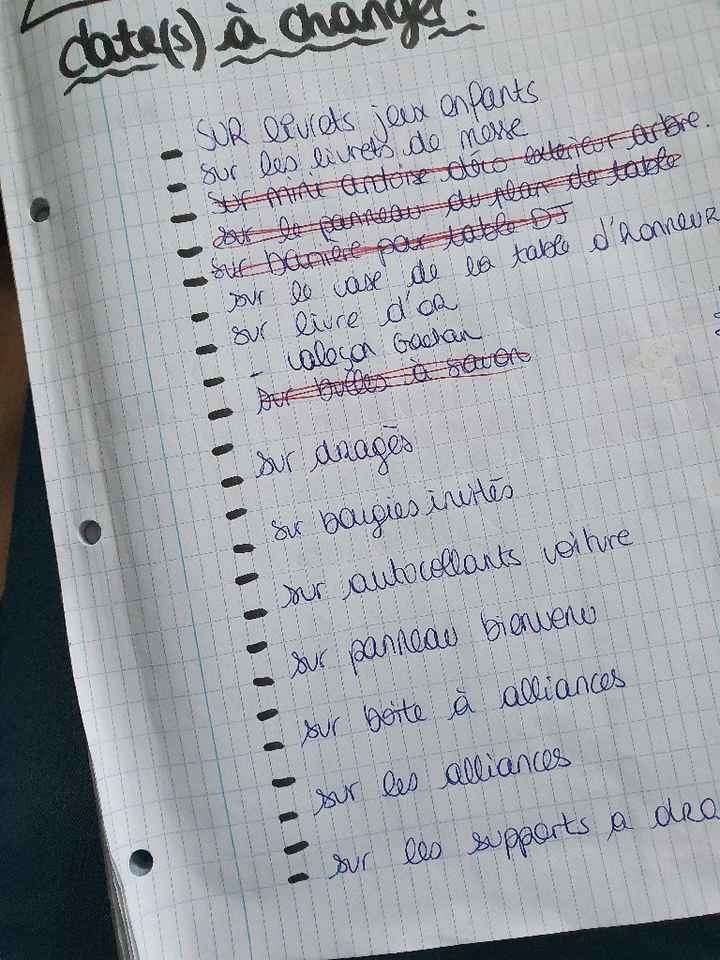 date(s) à changer :
SUR livrets jeux enfants
sur les livrets de messe
sur mini ardoise déco exterieur arbre.
sur le panneau du plan de table
sur banière pour table DJ
sur le vase de la table d'honneur
sur livre d'or
- caleçon Gaetan
sur bulles à savon
sur dragées
sur bougies invités
sur autocollants voiture
sur panneau bienvenu
sur boîte à alliances
sur les alliances
sur les supports a dra